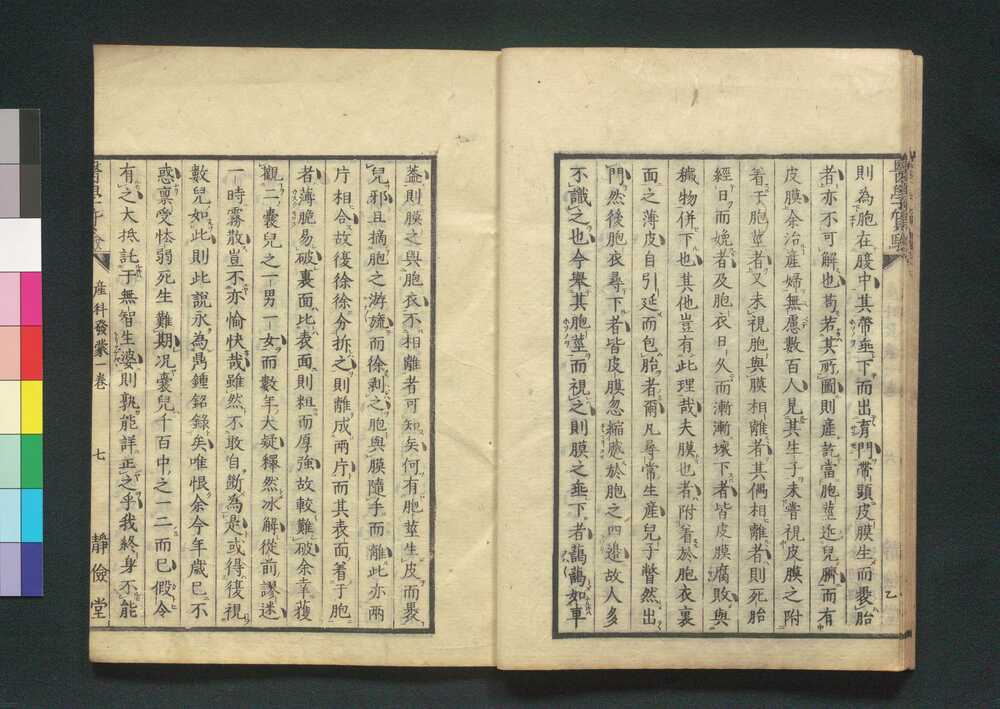 則為胞在腹中其帶垂下而出肓門帶頭皮膜生而褁胎
者亦不可解也苟若其所圖則產訖當胞莖近兒臍而有
皮膜余治產婦無慮數百人見其生子未嘗視皮膜之附
着于胞莖者又未視胞與膜相離者其偶相離者則死胎
經日而娩者及胞衣日久而漸漸壞下者皆皮膜腐敗與
穢物併下也其他豈有此理哉夫膜也者附着於胞衣裏
面之薄皮自引延而包胎者爾凡尋常生產兒子瞥然出
門然後胞衣尋下者皆皮膜忽縮蹙於胞之四邊故人多
不識之也今舉其胞莖而視之則膜之垂下者藹藹如車
蓋則膜之與胞衣不相離者可知矣何有胞莖生皮而褁
兒邪且摘胞之游流而徐剥之胞與膜隨手而離此亦兩
片相合故復徐徐分拆之則離成兩片而其表面着于胞
者薄脆易破裏面比表面則粗而厚強故較難破余幸獲
觀二囊兒之一男一女而數年大疑釋然冰解從前謬迷
一時霧散豈不亦愉快哉雖然不敢自斷為是或得復視
數兒如此則此說永為鼎鍾銘錄矣唯恨余今年歲已不
惑禀受怯弱死生難期况囊兒千百中之一二而已假令
有之大抵託于無智生婆則孰能詳正之乎我終身不能
產科發蒙一卷
七
靜儉堂